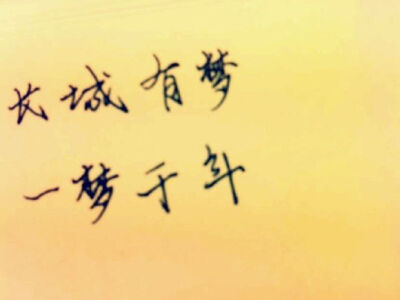 长城有梦
一梦千年